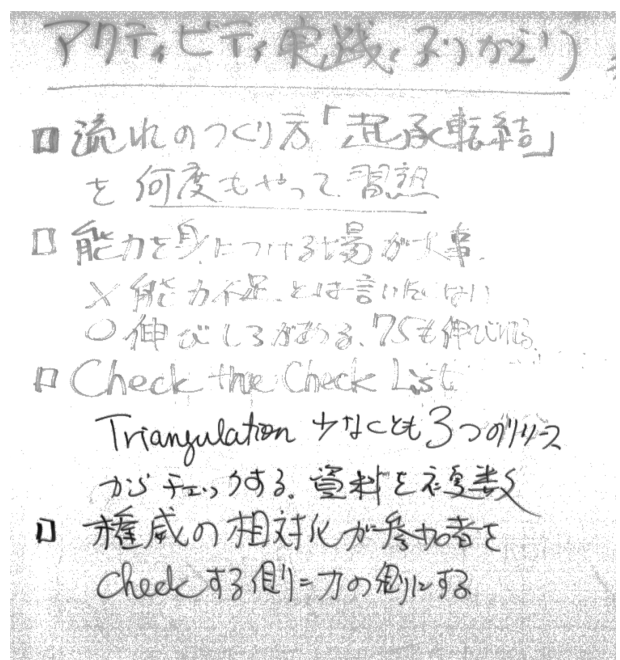 アクティビティ実践、ふりかえり
□ 流れのつくり方「起承転結」
を何度もやって習熟
□ 能力を身につける場が大事、
× 能力不足、とは言いたくない
○ 伸びしろがある、75も伸びしろ
□ Check the Check List
Triangulation 少なくとも3つのリソース
からチェックする。資料を複数
□ 権威の相対化が参加者を
Checkする側=力の側にする